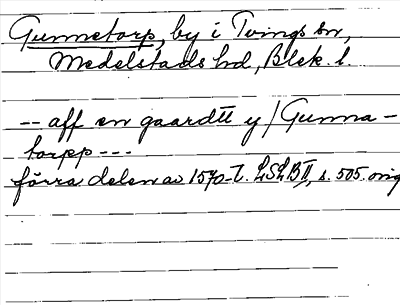 Gunnetorp, by i Tvings sn,
Medelstads hd, Blek. l.
-- aff en gaardtt y / Gunna-
torpp ---
förra delen av 1570-t. LSLB II, s. 505. orig